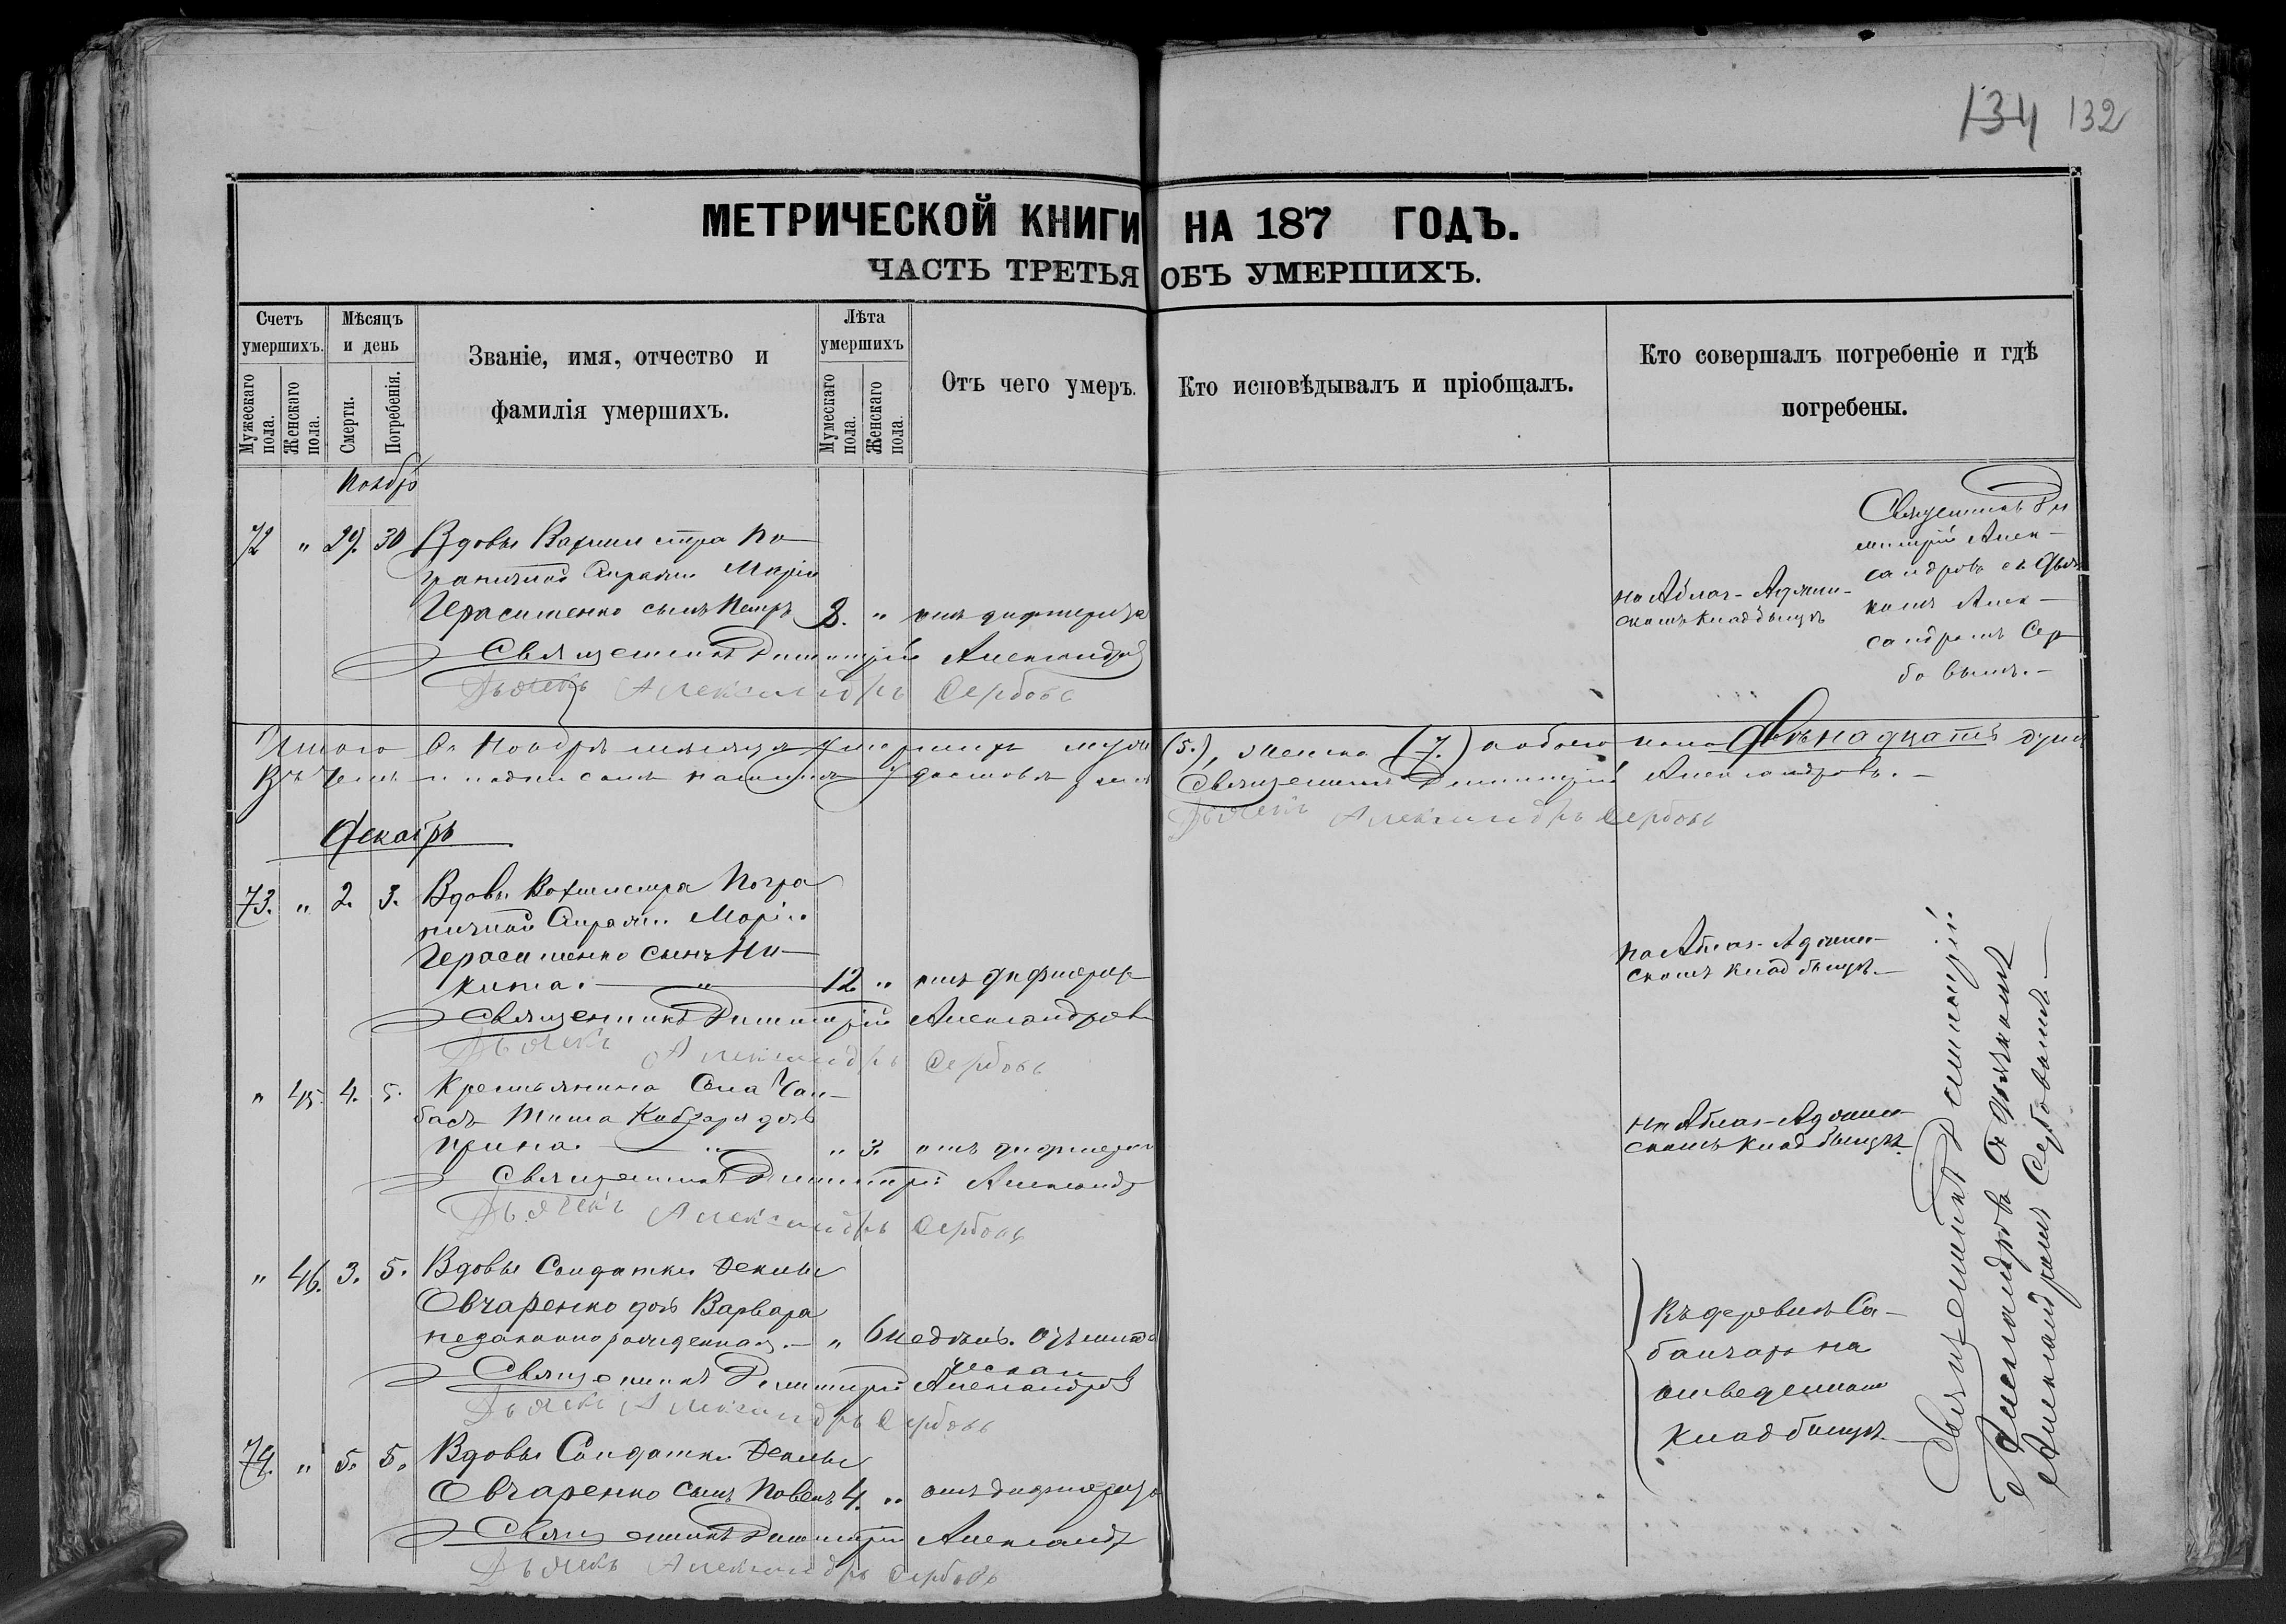 134 132
МЕТРИЧЕСКОЙ КНИГИ НА 187 ГОДЪ.
ЧАСТЬ ТРЕТЬЯ ОБЪ УМЕРШИХЪ.
Счетъ умершихъ.
Мужескаго пола.
Женскаго пола.
Мѣсяцъ и день
Смерти.
Погребенія.
Званіе, имя, отчество и
фамилія умершихъ.
Лѣта умершихъ
Мумескаго пола.
Женскаго пола.
Отъ чего умеръ.
Кто исповѣдывалъ и пріобщалъ.
Кто совершалъ погребеніе и гдѣ
погребены.
Ноябрь
72 " 29. 30 Вдовы Вахмистра По-
граничной Стражи Маріи
Герасименко сынъ Петръ 8. " отъ дифтерита
Священникъ Димитрій Александровъ
Дьячекъ Александръ Сербовъ
на Аблаг-Аджи-
скомъ кладбищѣ
Священникъ Ди
митрій Алек-
сандровъ съ Дьяч
комъ Алек-
сандромъ Сер
бовымъ.-
Итого въ Ноябрѣ мѣсяцѣ умершихъ муж (5.), женска (7.) а обоего пола двѣнадцать душ
Въ чемъ и подписомъ нашимъ удостовѣряемъ Священникъ Димитрій Александровъ.-
Дьячекъ Александръ Сербовъ
Декабрь
73. " 2. 3. Вдовы Вахмистра Погра
ничной Стражи Маріи
Герасименко сынъ Ни-
кита. " 12 " отъ дифтерит
Священникъ Димитрій Александровъ
Дьячекъ Александръ Сербовъ
на Аблаг-Аджи-
скомъ кладбищѣ.-
" 45. 4. 5. Крестьянина Села Чам-
басъ Тита Кобзаря дочь
Ирина. " " 3. отъ дифтерит
Священникъ Димитрій Александ
Дьячекъ Александръ Сербовъ
на Аблаг-Аджи-
скомъ кладбищѣ.
" 46. 3. 5. Вдовы Солдатки Феклы
Овчаренко дочь Варвара
незаконнорожденная.- " 6 недѣль.
Священникъ Димитрій Александровъ
Дьячекъ Александръ Сербовъ
Въ деревнѣ Са-
банчаро на
отведенномъ
кладбищѣ.
74. " 5. 5. Вдовы Солдатки Феклы
Овчаренко сынъ Павелъ 4. " отъ дифтерита
Священникъ Димитрій Александ
Дьячекъ Александръ Сербовъ
Священникъ Димитрій
Александровъ съ Дьячкомъ
Александромъ Сербовымъ.-